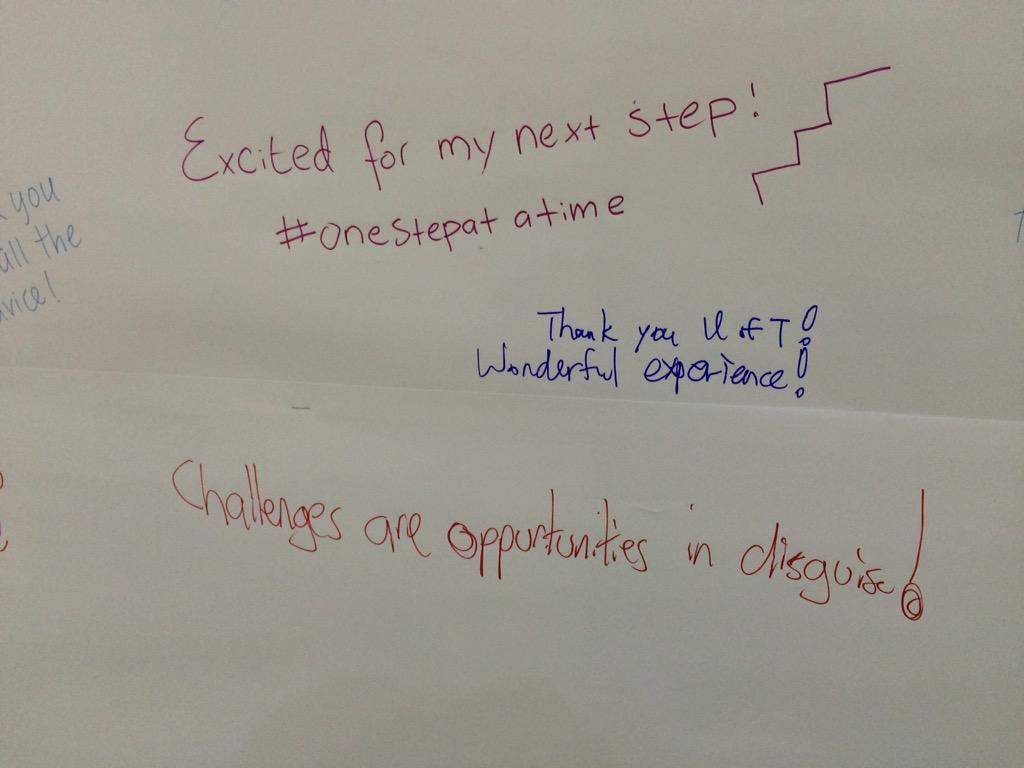 Excited for my next step!
#onestepatatime
you
all the
Thank you U of T!
Wonderful experience!
Challenges are oppurtunities in disguise!